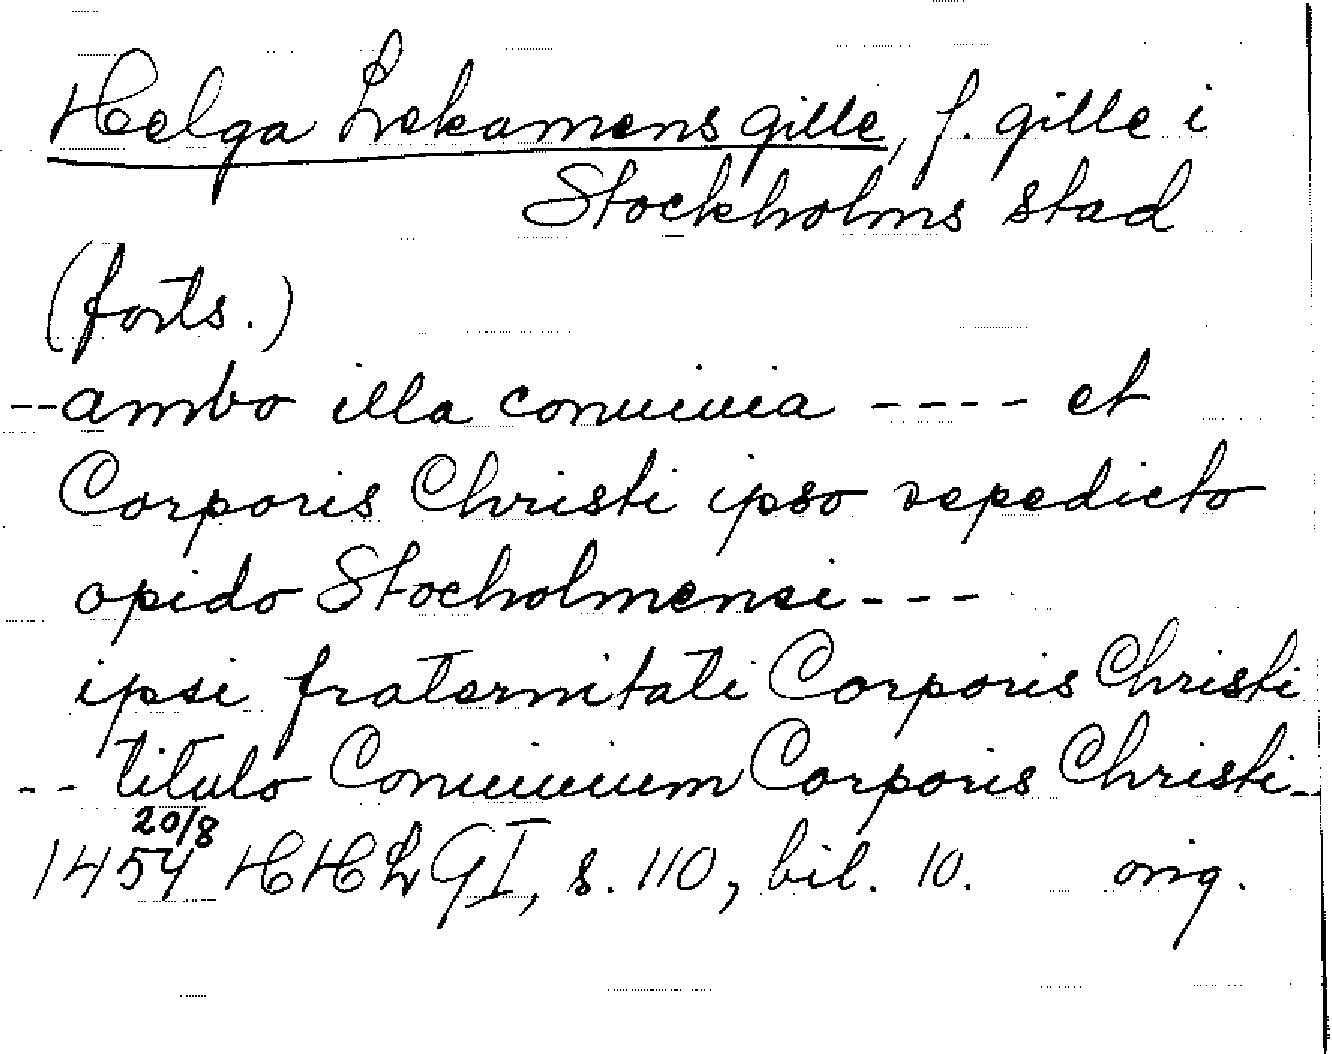 Helga Lekamens gille, f. gille i
Stockholms stad
(forts.)
--ambo illa conuiuia ---- et
Corporis Christi ipso sepedicto
opido Stocholmensi---
ipsi fraternitati Corporis Christi
-- titulo Conuiuium Corporis Christi--
20/8
1454 HHLG I, s. 110, bil. 10. orig.